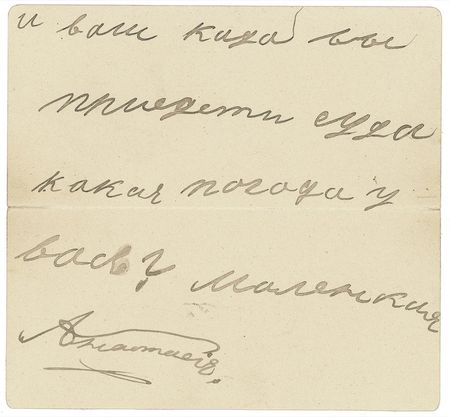 и ваш када вы
приедети суда
какая погода у
васъ? маленкия
Анастасія.